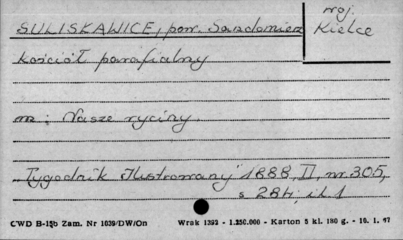 woj.
SULISŁAWICE, pow. Sandomierz Kielce
kościół parafialny
m: Nasze ryciny.
"Tygodnik Ilustrowany" 1888, II, nr. 305,
s 284; il. 1
CWD B-15b Zam. Nr 1039/DW/On Wrak 1393 - 1.250.000 - Karton 5 kl. 180 g. - 16. 1. 47